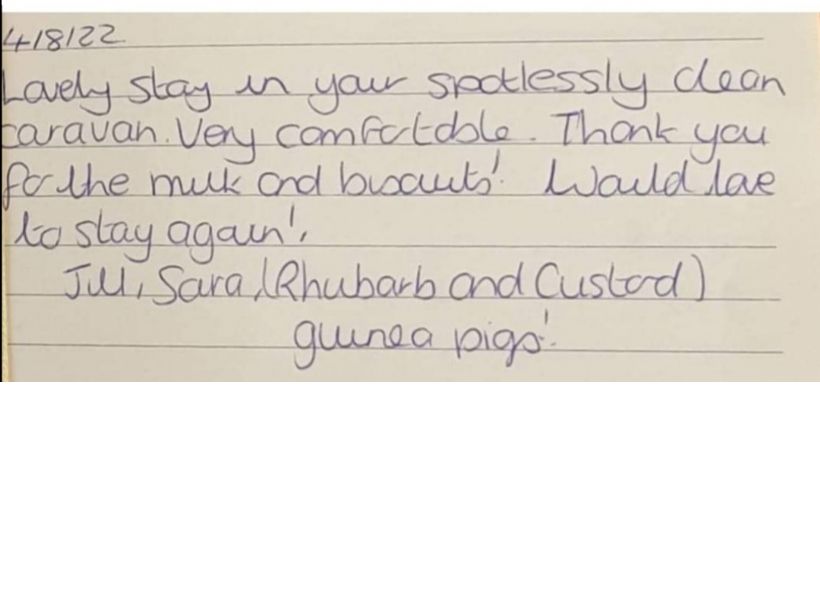 4/8/22
Lovely stay in your spotlessly clean
caravan. Very comfortable. Thank you
for the milk and biscuits! Would love
to stay again!
Jill, Sara, (Rhubarb and Custard)
guinea pigs!